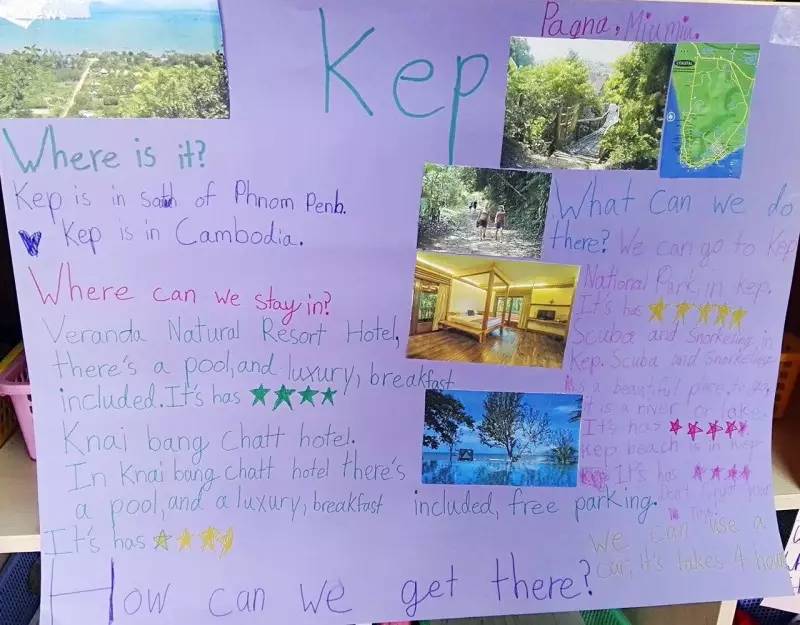 Kep
Pagna, Miumiu.
Where is it?
Kep is in south of Phnom Penh.
Kep is in Cambodia.
Where can we stay in?
Veranda Natural Resort Hotel,
there's a pool, and luxury, breakfast
included. It's has ★★★★
Knai bang chatt hotel.
In Knai bang chatt hotel there's
a pool, and a luxury, breakfast included, free parking.
It's has ★★★★
What can we do
there? We can go to Kep
National Park, in Kep.
It's has ★★★★★
Scuba and Snorkeling in
Kep. Scuba and Snorkeling
is a beautiful place, as
it is a river or lake.
It's has ★★★★★
Kep beach is in Kep
It's has ★★★★
your
How can we get there?
We can use a
car, it's takes 4 hour